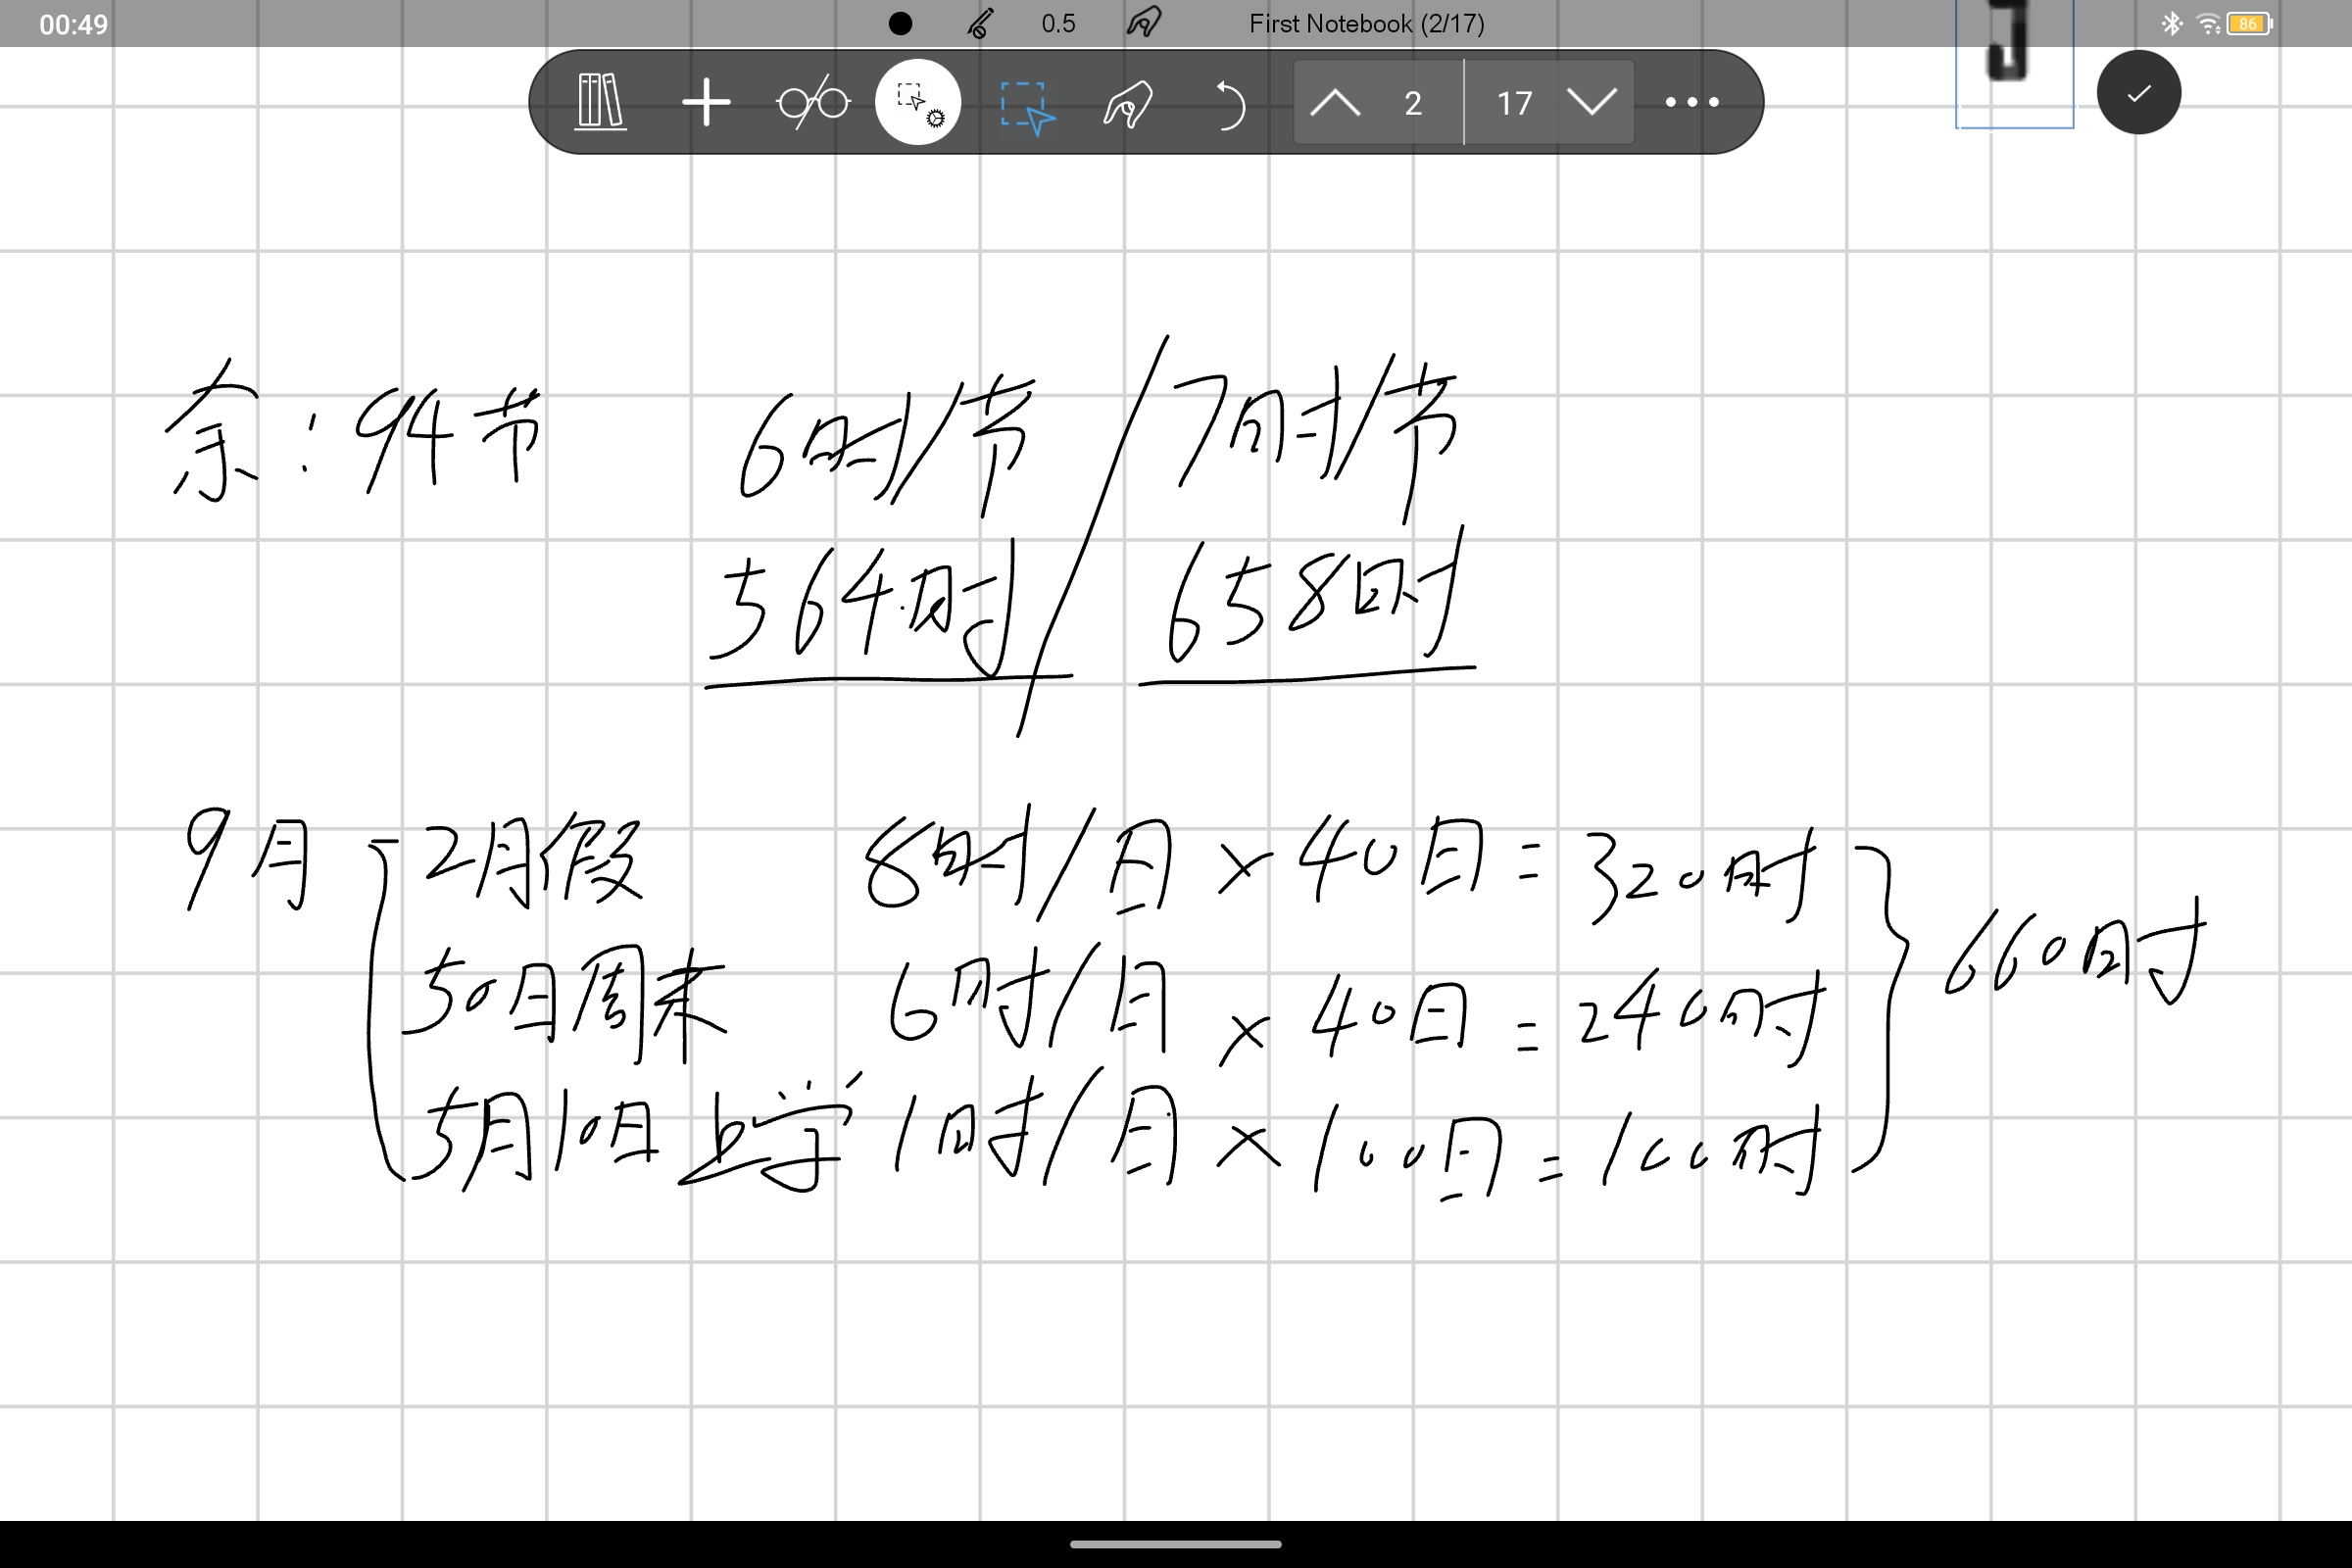 00:49
0.5
First Notebook (2/17)
86
2
17
余:94节 6时/节 / 7时/节
564时 658时
9月 2月假 8时/日×40日=320时
50日周末 6时/日×40日=240时
5月10日上学 1时/日×100日=100时
660时